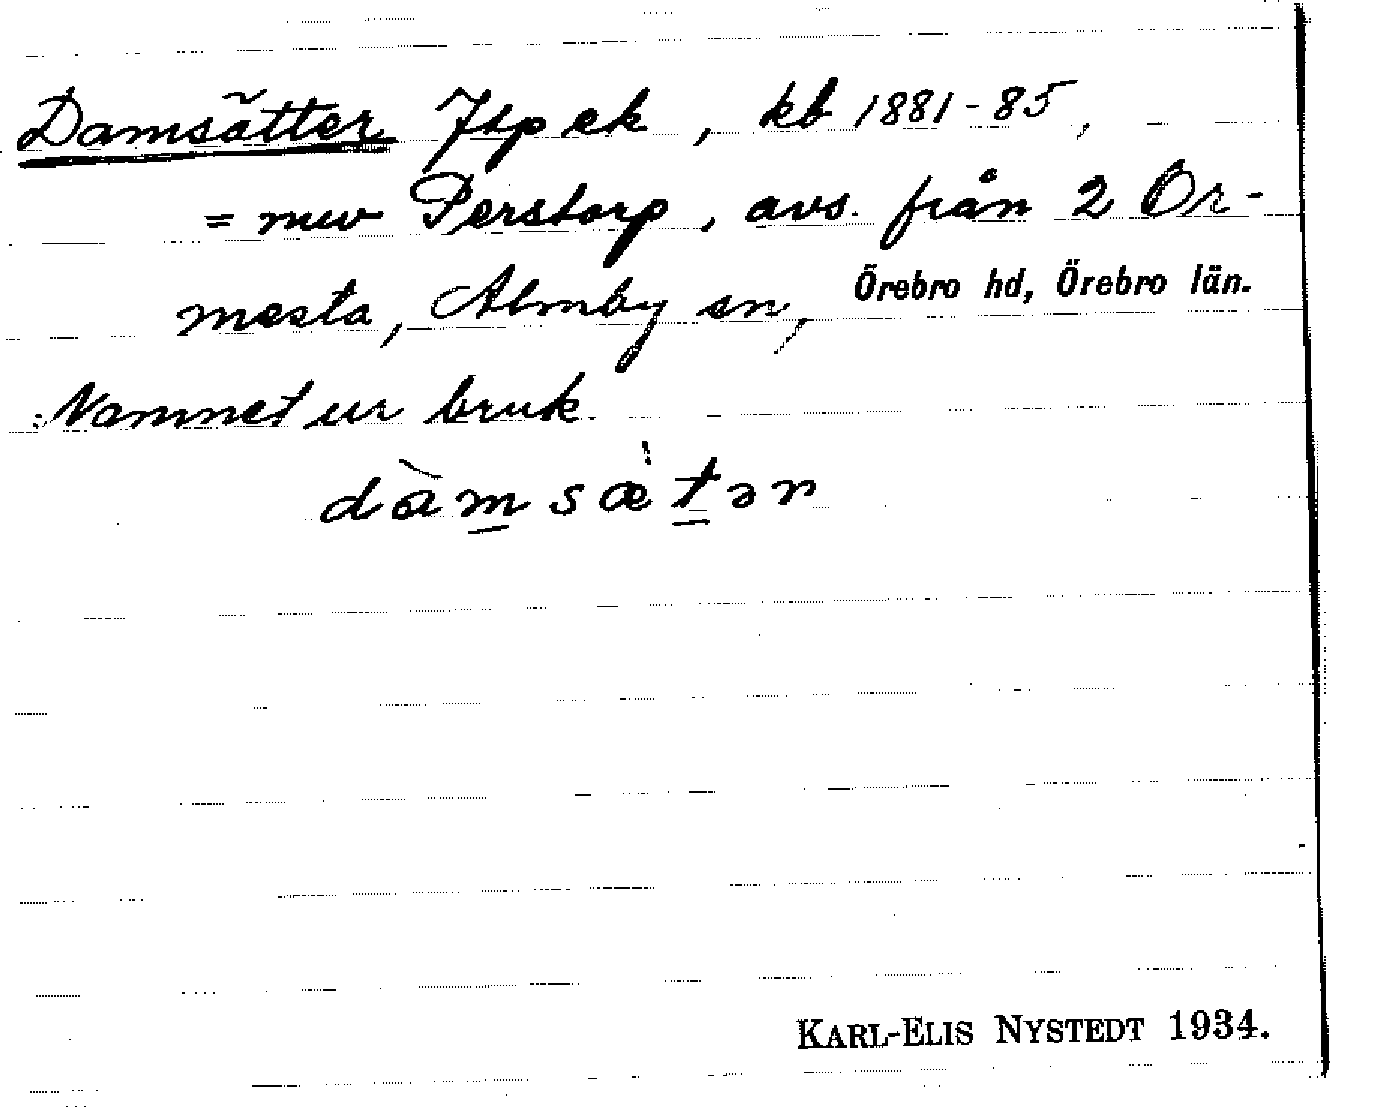 Damsätter Jtp ek, kb 1881-85,
= nuv Perstorp, avs. från 2 Or-
mesta, Almby sn, Örebro hd, Örebro län.
Namnet ur bruk.
dàmsætər
KARL-ELIS NYSTEDT 1934.